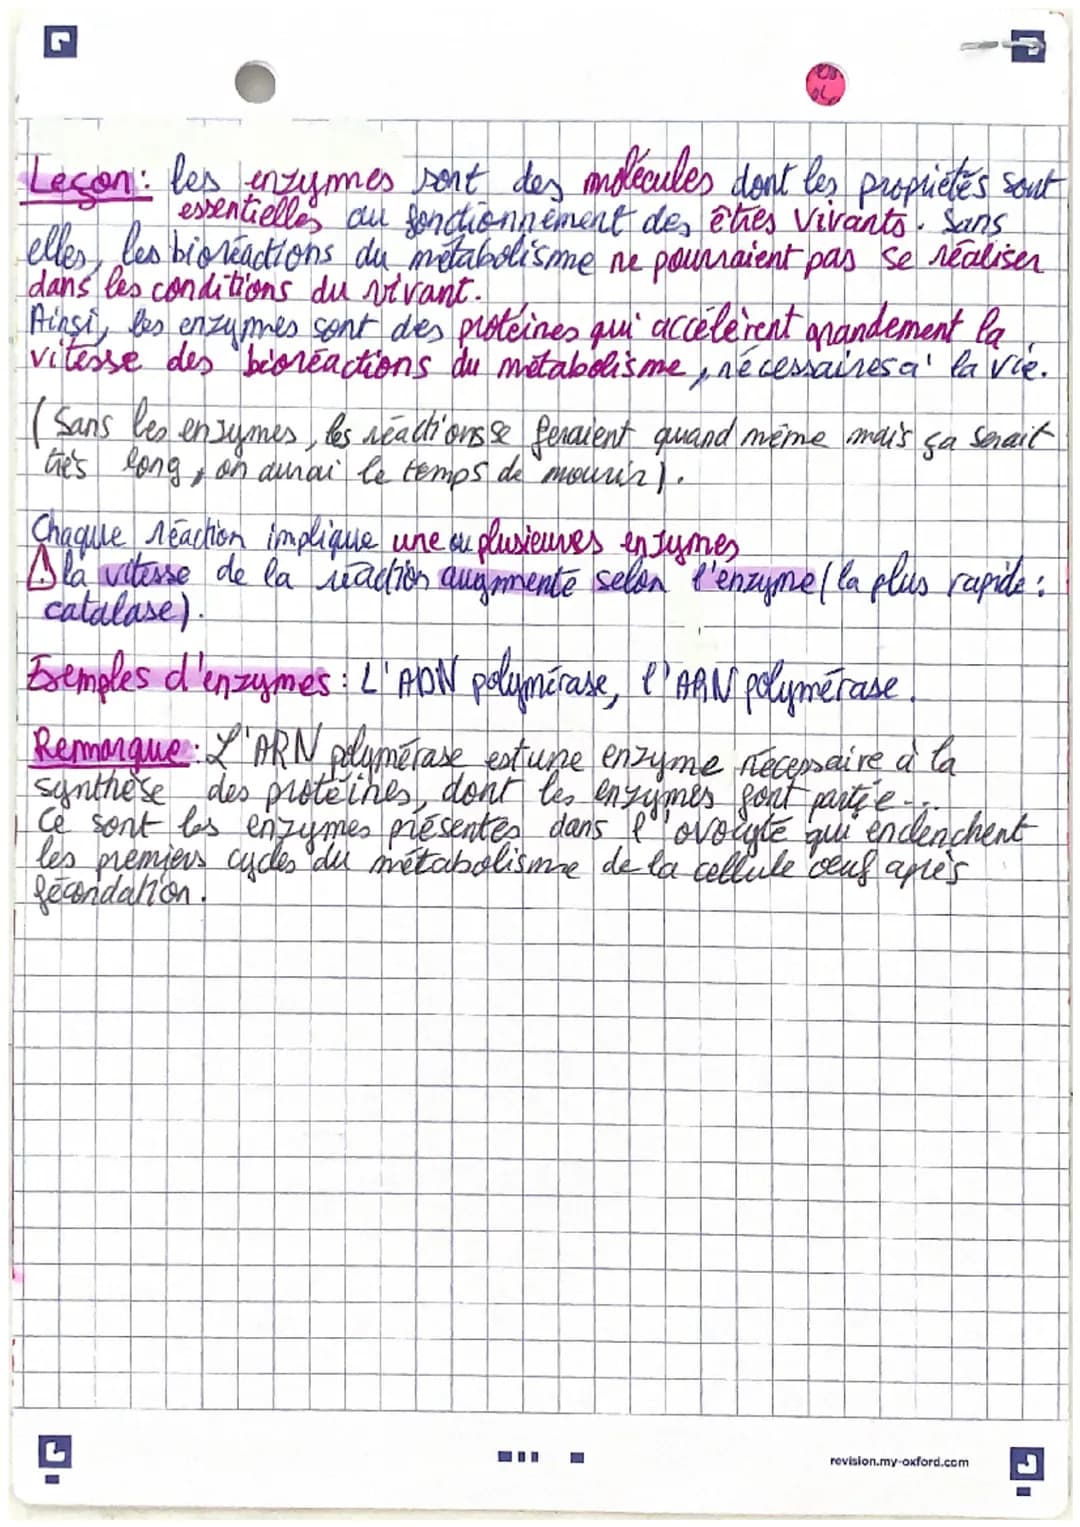 Leçon: les enzymes sont des molécules dont les propriétés sont
essentielles au fonctionnement des êtres vivants. Sans
elles, les bioréactions du métabolisme ne pourraient pas se réaliser
dans les conditions du vivant.
Ainsi, les enzymes sont des protéines qui accélèrent grandement la
vitesse des bioréactions du métabolisme, nécessaires à la vie.
(Sans les enzymes, les réactions se feraient quand même mais ça serait
très long, on aurai le temps de mourir).
Chaque réaction implique une ou plusieures enzymes
⚠ la vitesse de la réaction augmente selon l'enzyme (la plus rapide:
catalase).
Exemples d'enzymes: L'ADN polymérase, l'ARN polymérase.
Remarque: L'ARN polymérase est une enzyme nécessaire à la
synthèse des protéines, dont les enzymes font partie...
Ce sont les enzymes présentes dans l'ovocyte qui enclenchent
les premiers cycles du métabolisme de la cellule œuf après
fécondation.
revision.my-oxford.com